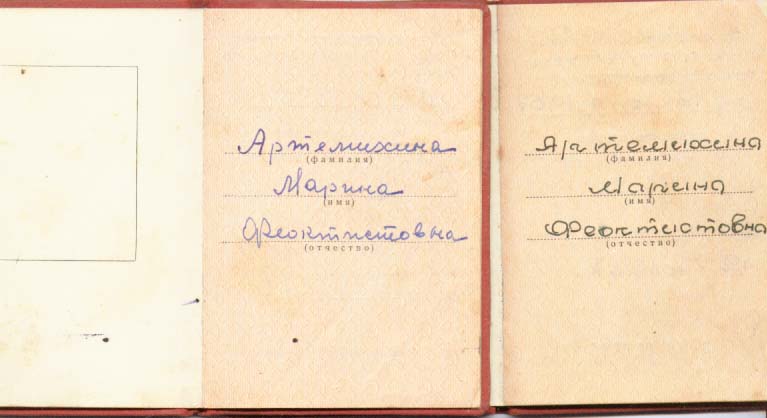 Артемихина
(фамилия)
Марина
(имя)
Феоктистовна
(отчество)
Артемихина
(фамилия)
Марина
(имя)
Феоктистовна
(отчество)